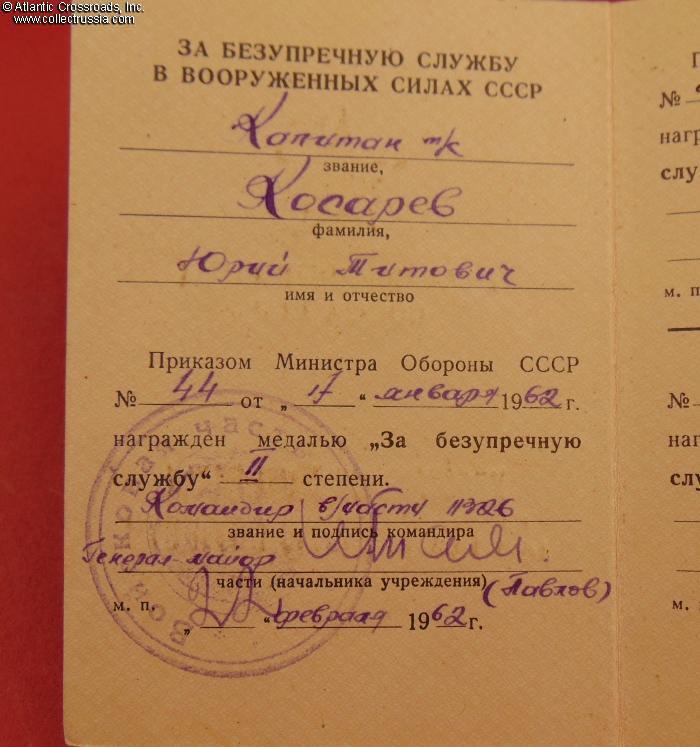 © Atlantic Crossroads, Inc.
www.collectrussia.com
ЗА БЕЗУПРЕЧНУЮ СЛУЖБУ
В ВООРУЖЕННЫХ СИЛАХ СССР
Капитан т/с
звание,
Косарев
фамилия,
Юрий Титович
имя и отчество
Приказом Министра Обороны СССР
№ 44 от „ 17 " января 1962 г.
награжден медалью „За безупречную
службу" II степени.
Командир в/части 11326
звание и подпись командира
Генерал-майор
части (начальника учреждения) (Павлов)
м. п. „ 22 " февраля 1962 г.
Войсковая часть
№
наг
слу
м. п
№
наг
слу
м.